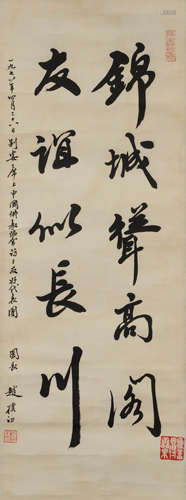 錦城聳高閣
友誼似長川
一九七八年四月二六日別宴席上中國佛教協會訪日友好代表團
團長 趙樸初